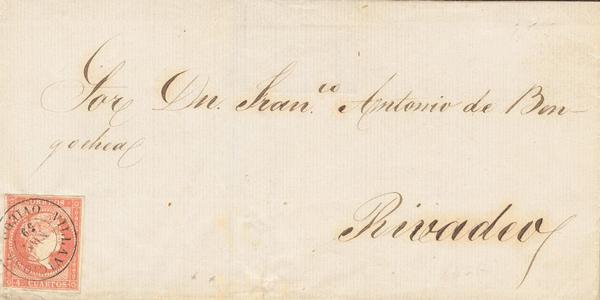 Sor Dn. Fran.co Antonio de Ben-
gochea
Rivadeo
CORREOS
4 CUARTOS